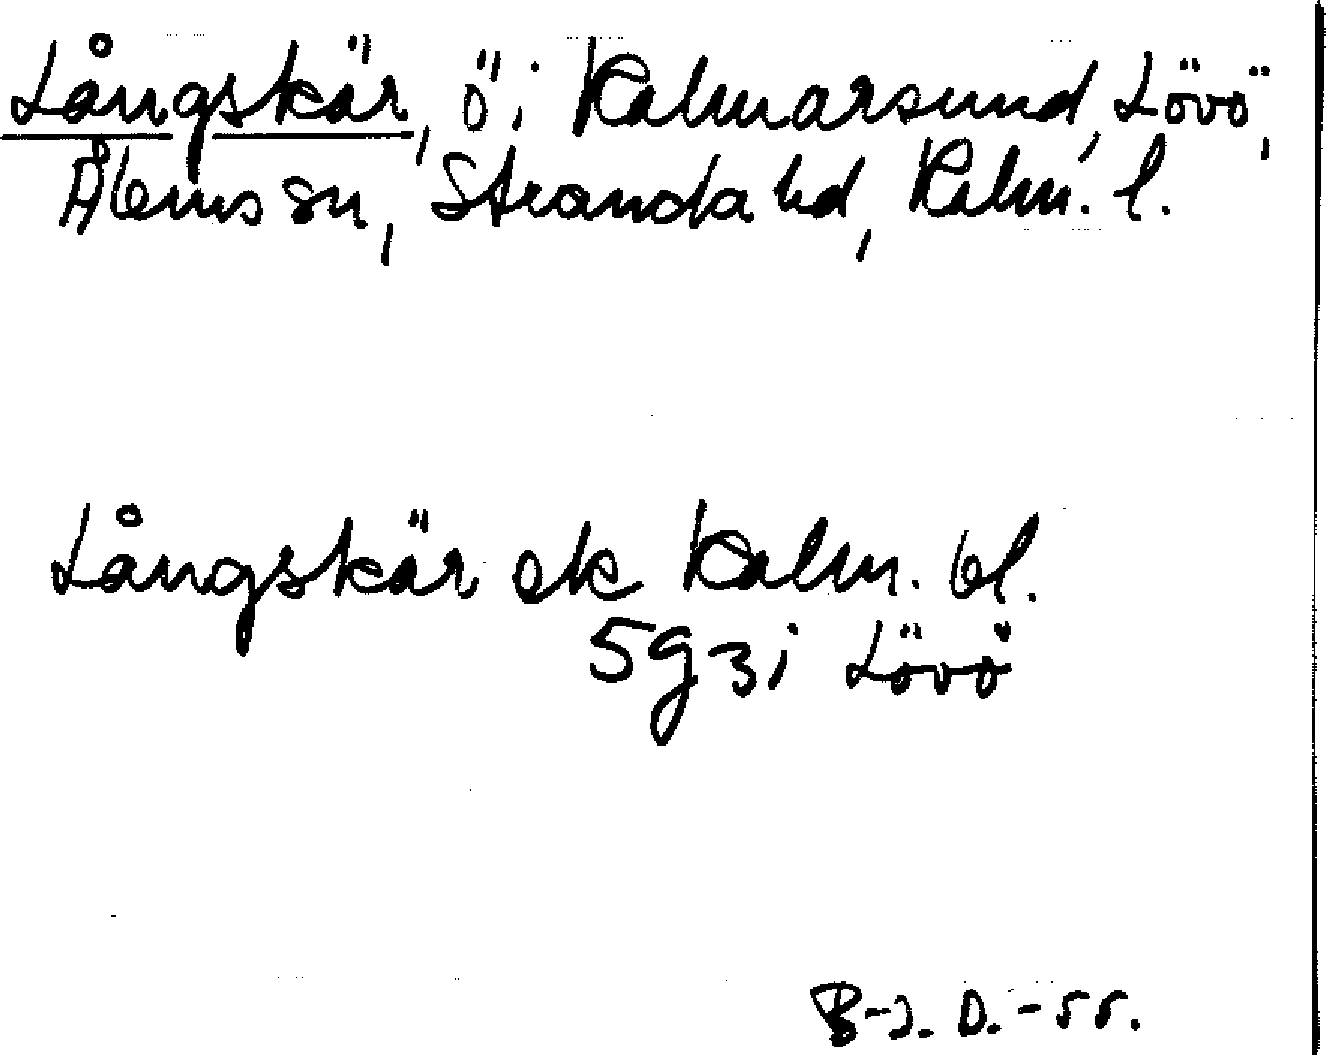 Långskär, ö i Kalmarsund, Lövö,
Ålems sn, Stranda hd, Kalm. l.
Långskär ek Kalm. bl.
5g3i Lövö
B-J. D. -55.